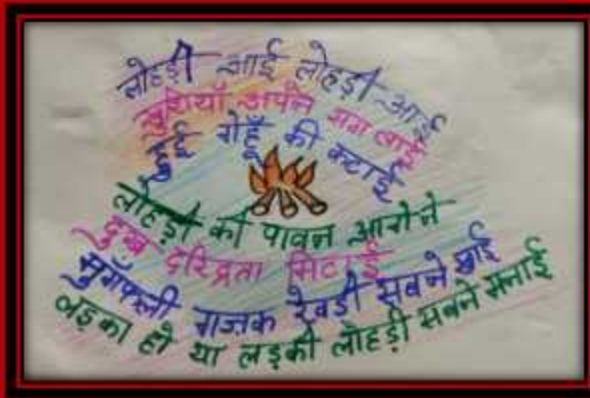 लोहड़ी आई लोहड़ी आई
खुशियाँ अपने संग लाई
हुई गेहूँ की कटाई
लोहड़ी की पावन आग ने
दुख दरिद्रता मिटाई
मुगँफली गज्जक रेवडी सबने खाई
लड़का हो या लड़की लोहड़ी सबने मनाई